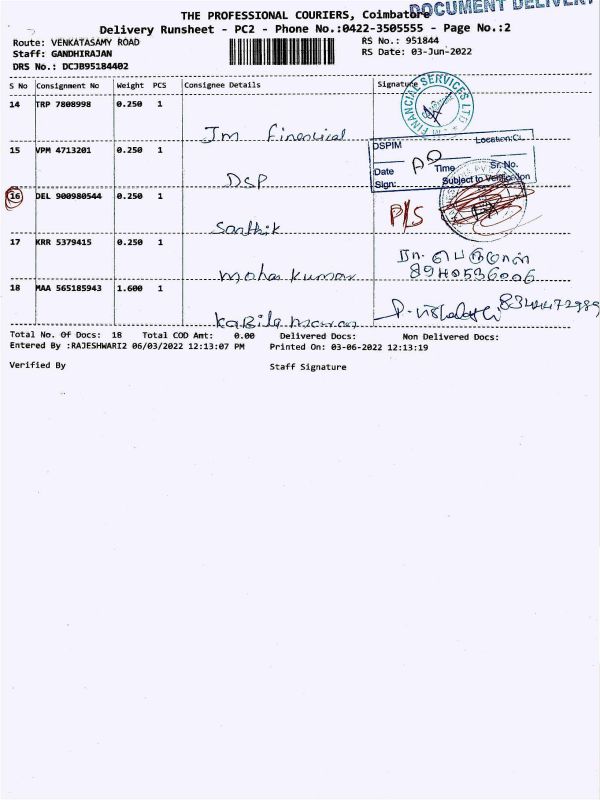 DOCUMENT DELIVERY
THE PROFESSIONAL COURIERS, Coimbatore
Delivery Runsheet - PC2 - Phone No.:0422-3505555 - Page No.:2
Route: VENKATASAMY ROAD RS No.: 951844
Staff: GANDHIRAJAN RS Date: 03-Jun-2022
DRS No.: DCJB95184402
S No Consignment No Weight PCS Consignee Details Signature
14 TRP 7808998 0.250 1
Jm Financial
FINANCIAL SERVICES LTD
15 VPM 4713201 0.250 1
DSP
DSPIM Location:
Date Time Sr. No.
Sign: Subject to Verification
16 DEL 900980544 0.250 1 P/S
Santhik
17 KRR 5379415 0.250 1
Mohan Kumar
18 MAA 565185943 1.600 1
Total No. Of Docs: 18 Total COD Amt: 0.00 Delivered Docs: Non Delivered Docs:
Entered By :RAJESHWARI2 06/03/2022 12:13:07 PM Printed On: 03-06-2022 12:13:19
Verified By Staff Signature